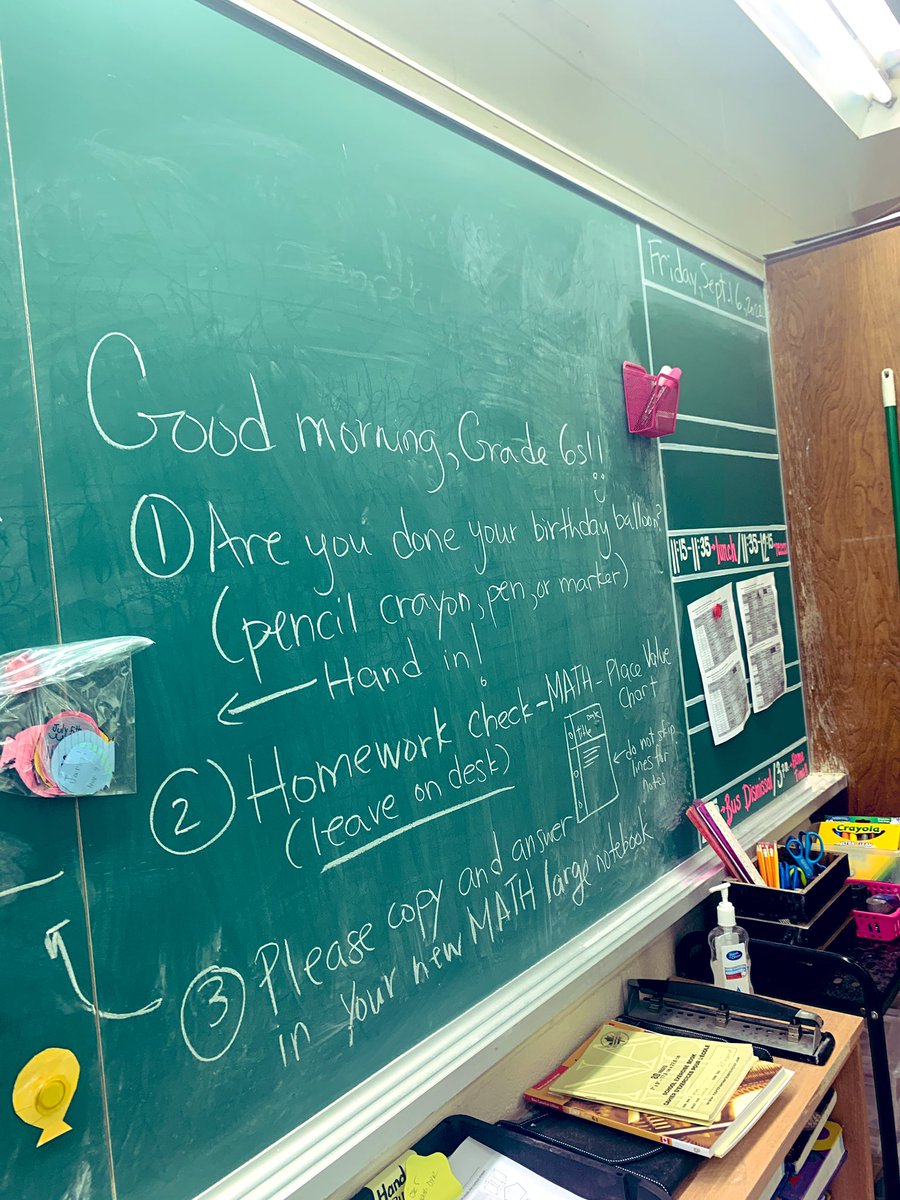 Friday, Sept. 16, 2022
Good morning, Grade 6s!!
① Are you done your birthday balloon?
(pencil crayon, pen, or marker)
← Hand in!
② Homework check - MATH - Place Value
Chart
(leave on desk)
Date
Title
← do not skip
lines for
notes
③ Please copy and answer
in your new MATH large notebook
11:15-11:35 lunch / 11:35-12:15
Bus Dismissal /
July 6th
Crayola
SCHOOL EXERCISE BOOK
CAHIER D'EXERCICES POUR L'ÉCOLE
Hand